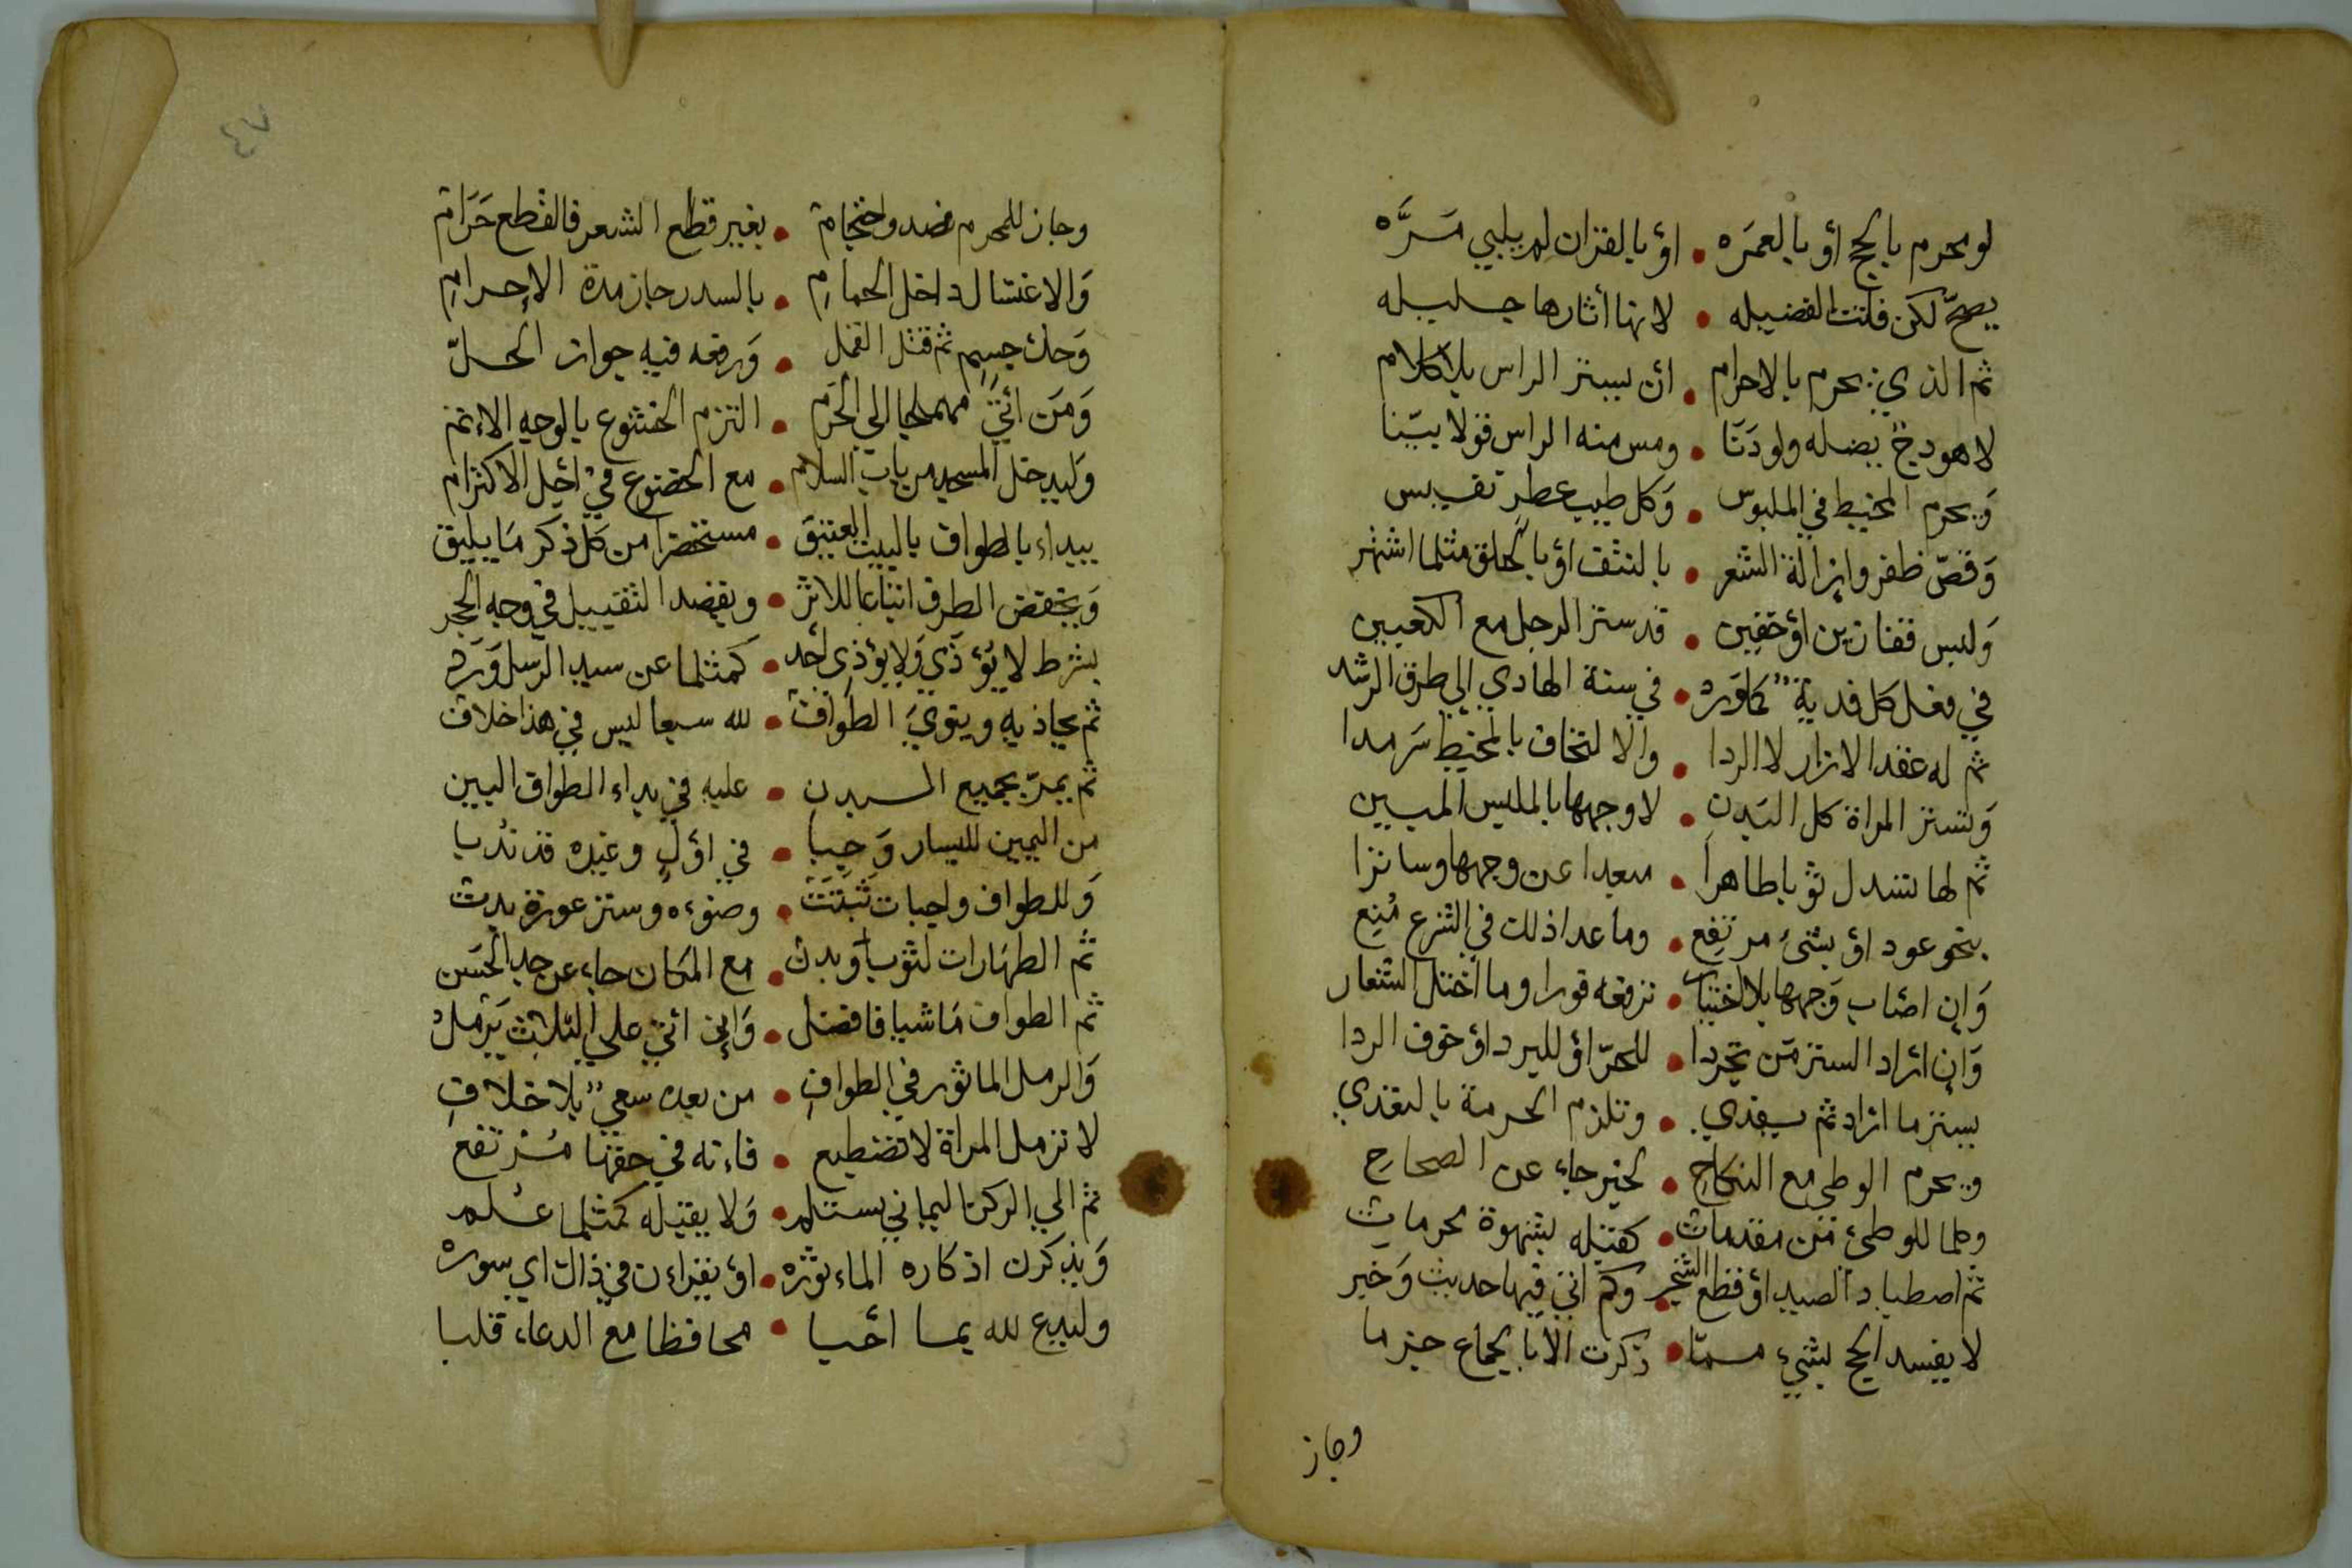 لو محرم بالحج أو بالعمره • أو بالقران لم يلبي مرَّه
يصحّ لكن فاتت الفضيله • لانها أثارها جليله
ثم الذي يحرم بالاحرام • ان يستر الراس بلا كلام
لا هودج بضله ولو دنا • ومس منه الراس قولا بيّنا
وَيحرم المخيط في الملبوس • وَكل طيب عطر نفيس
وَقصّ ظفر وإزالة الشعر • بالنتف أو بالحلق مثلما اشتهر
وَلبس قفازين أو خفين • قد ستر الرجل مع الكعبين
في فعل كل فدية كما وَرد • في سنة الهادي إلي طرق الرشد
ثم له عقد الازار لا الردا • والالتحاف بالمخيط سَرمدا
وَلتستر المراة كل البَدن • لا وجهها بالملبس المبين
ثم لها تسدل ثوبا طاهرا • مبعدا عن وجهها وساترا
بنحو عود أو بشئ مرتفع • وما عدا ذلك في الشرع مُنِع
وَإن اصَاب وَجهها بلا اختيار • ترفعه فورا وما اختل الشعار
وَإن اراد الستر مَن تجردا • للحرّ أو للبرد أو خوف الردا
يستر ما اراد ثم يفدي • وتلزم الحرمة بالتعدي
ويحرم الوطي مع النكاح • لخبر جاء عن الصحاح
وكلما للوطئ من مقدمات • كقبله بشهوة محرمات
ثم اصطياد الصيد أو قطع الشجر • وكم اتي فيها حديث وَخبر
لا يفسد الحج بشيء مما • ذكرت الا بالجماع جزما
وجاز
٤٧
وجاز للمحرم فصد واحتجام • بغير قطع الشعر فالقطع حَرَام
وَالاغتسال داخل الحمامِ • بالسدر جاز مدة الإحرامِ
وَحك جسم ثم قتل القمل • وَرفعه فيه جواز الحلّ
وَمَن اتي مهملجا الي الحَرَم • التزم الخشوع بالوجه الاتم
وَليدخل المسجد من باب السلام • مع الخضوع في أجل الاكترام
يبداء بالطواف بالبيت العتيق • مستحضرا من كل ذكر مَا يليق
وَيخفض الطرف اتباعا للاثر • ويقصد التقبيل في وجه الحجر
بشرط لا يُؤذَي وَلا يؤذي أحد • كمثلما عن سيد الرسل وَرَد
ثم يحاذيه وينويَ الطوَاف • لله سبعا ليس في هذا خلاف
ثم يمرّ بجميع البدن • عليه في بداء الطواف البين
من اليمين لليسار وَجبا • في أوّلٍ وغيره قد نُدبا
وَللطواف واجبات ثَبَتَتْ • وضوءه وستر عورة بدت
ثم الطهَارات لثوب وَبدن • مع المكان جاء عن جد الحسَن
ثم الطواف مَاشيا فافضل • وَإن اتي علي الثلاث يَرمل
وَالرمل الماثور في الطوافِ • من بعده سعي بلا خلافِ
لا ترمل المراة لا تضطبع • فاءنه في حقها مُرتفع
ثم الي الركن اليماني يستلم • وَلا يقبله كمثلما عُلم
وَيذكرن اذكاره الماءثوره • أو يقراءن في ذاك اي سوره
وليدع لله بما أحبا • محافظا مع الدعاء قلبا